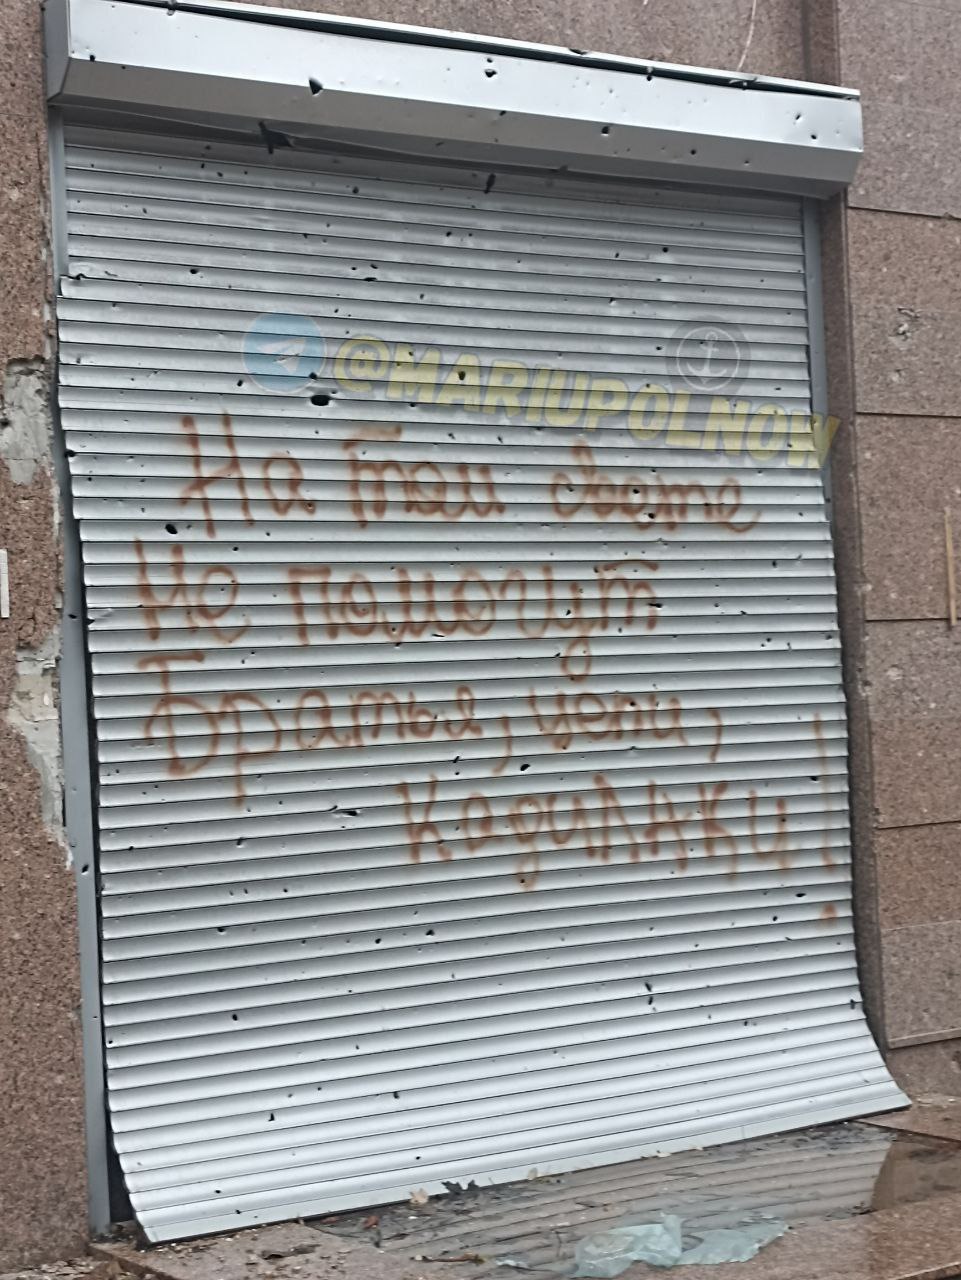 @MARIUPOLNOW
На том свете
Не помогут
Братья, цепи,
КадиЛАКи!